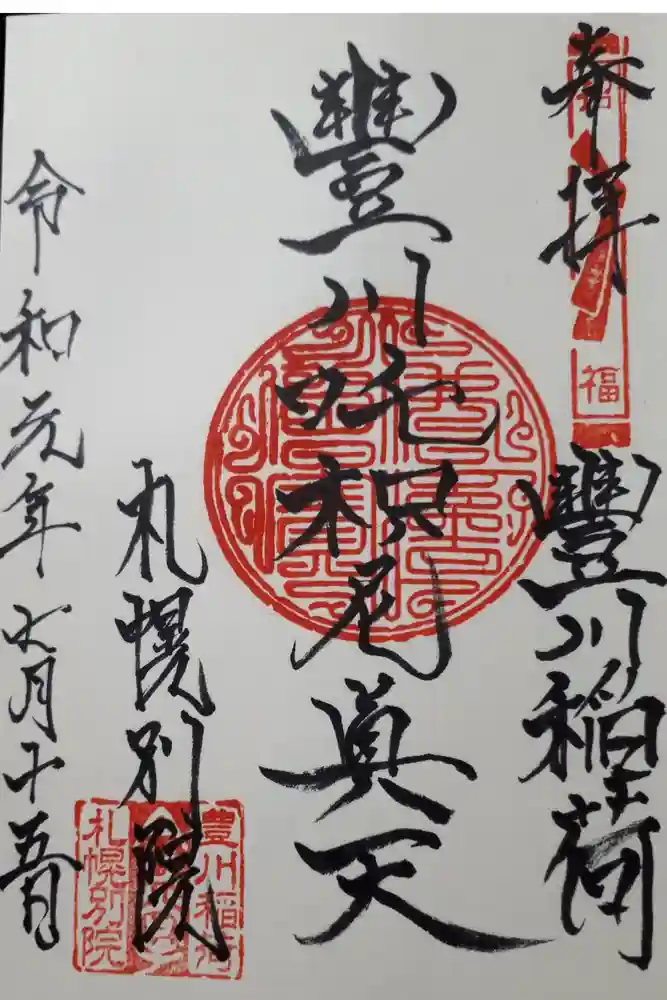 奉拝
豐川稲荷
豐川吒枳尼眞天
札幌別院
令和元年七月十五日
福
豊川稲荷
札幌別院